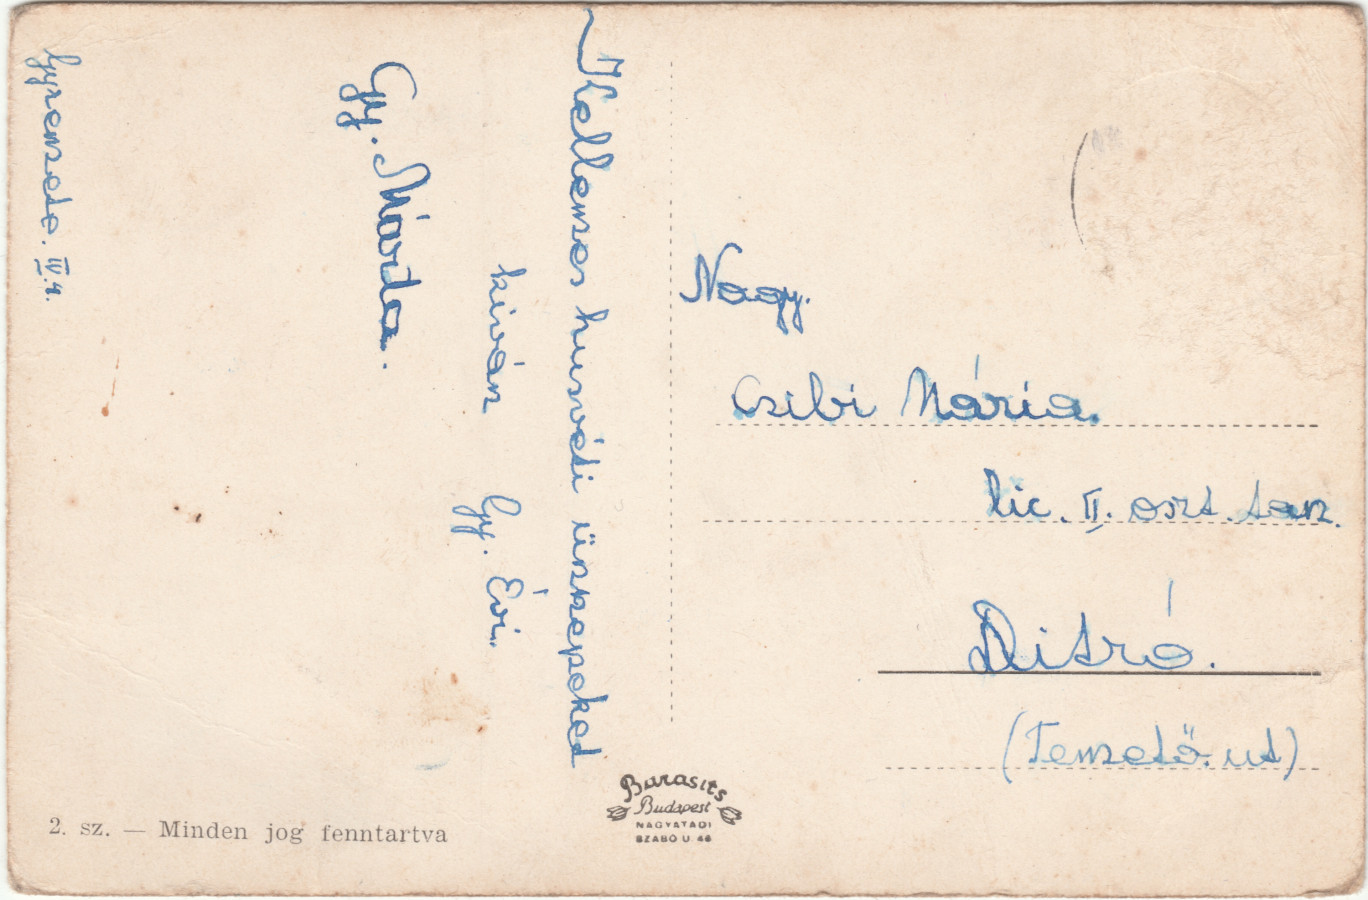 Kellemes husvéti ünnepeket
kiván Gy. Évi.
Gy. Márta.
Gyremete. IV.4.
Nagy.
Csibi Mária.
lic. II. oszt. tan.
Ditró.
(Temető. ut)
Barasits
Budapest
NAGYATÁDI
SZABÓ U. 46
2. sz. — Minden jog fenntartva